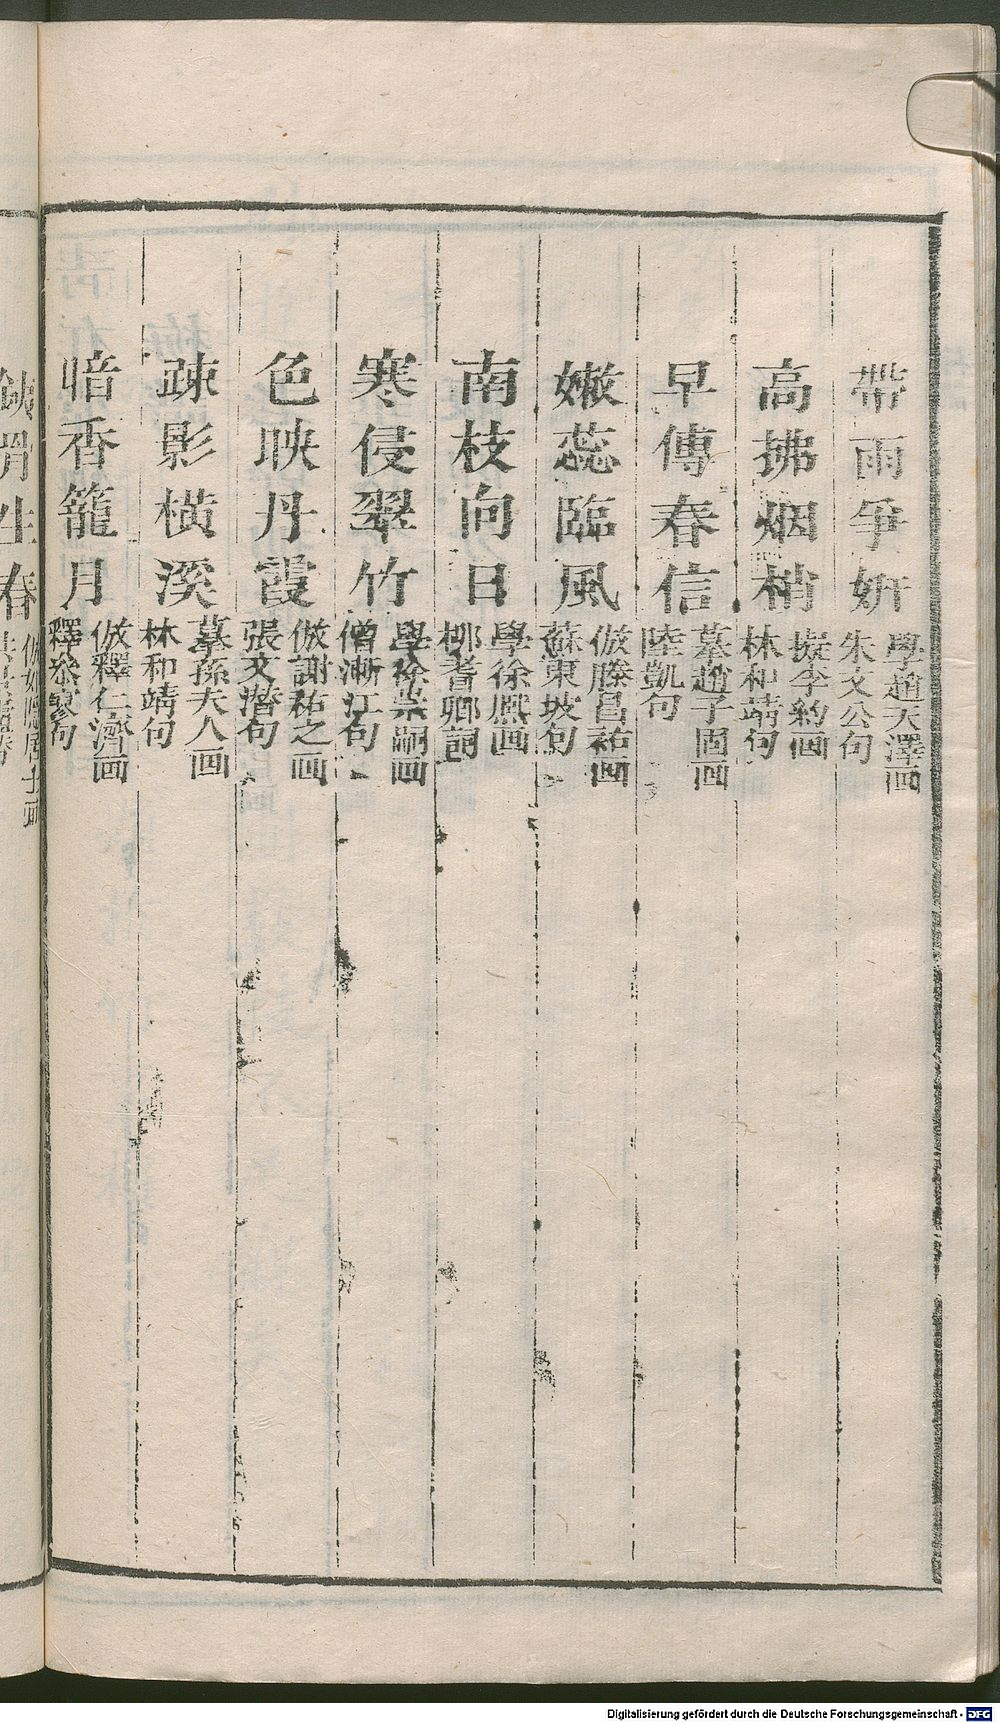 帶雨爭妍
學趙天澤画
朱文公句
高拂烟梢
擬李約画
林和靖句
早傳春信
墓趙子固画
陸凱句
嫩蕊臨風
倣滕昌祐画
蘇東坡句
南枝向日
學徐熙画
柳耆卿詞
寒侵翠竹
學徐崇嗣画
僧漸江句
色映丹霞
倣謝祐之画
張文潜句
疎影橫溪
墓孫夫人画
林和靖句
暗香籠月
倣釋仁濟画
釋參寥句
生春
Digitalisierung gefördert durch die Deutsche Forschungsgemeinschaft - DFG